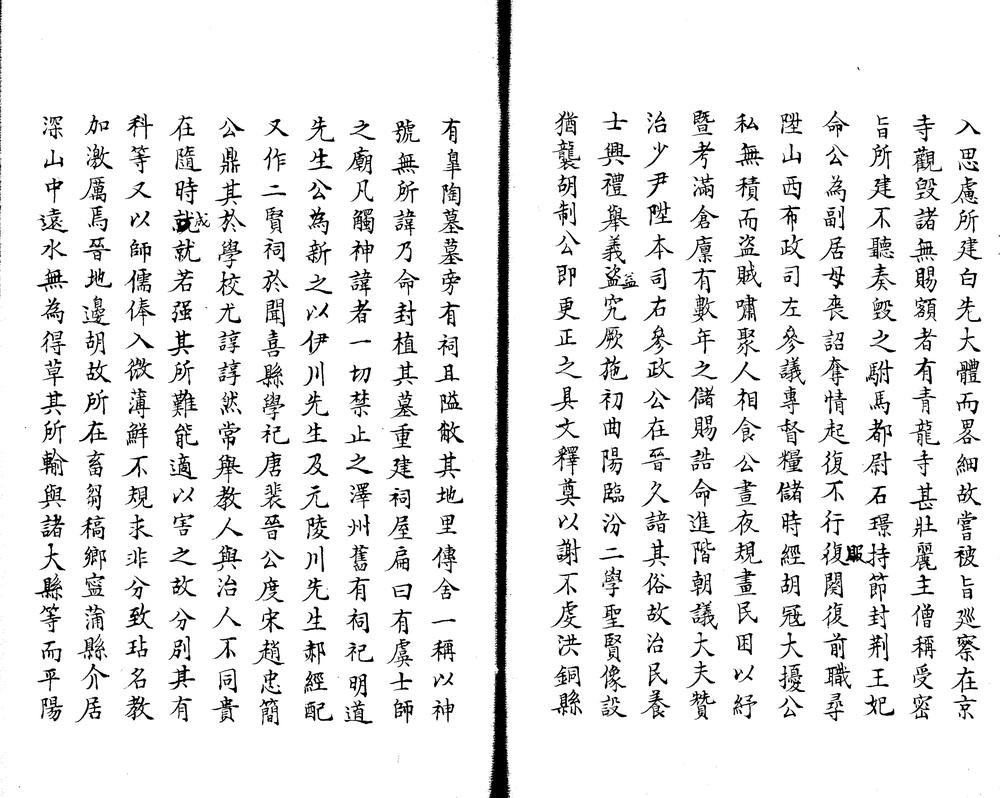 入思慮所建白先大體而畧細故嘗被旨廵察在京
寺觀毀諸無賜額者有青龍寺甚壯麗主僧稱受密
旨所建不聽奏毀之駙馬都尉石璟持節封荆王妃
命公為副居母喪詔奪情起復不行復服闋復前職尋
陞山西布政司左參議專督糧儲時經胡冦大擾公
私無積而盜賊嘯聚人相食公晝夜規畫民困以紓
暨考滿倉廪有數年之儲賜誥命進階朝議大夫贊
治少尹陞本司右參政公在晉久諳其俗故治民養
士興禮舉義盜益究厥施初曲陽臨汾二學聖賢像設
猶襲胡制公即更正之具文釋奠以謝不虔洪銅縣
有皐陶墓墓旁有祠且隘敝其地里傳舍一稱以神
號無所諱乃命封植其墓重建祠屋扁曰有虞士師
之廟凡觸神諱者一切禁止之澤州舊有祠祀明道
先生公為新之以伊川先生及元陵川先生郝經配
又作二賢祠於聞喜縣學祀唐裴晉公度宋趙忠簡
公鼎其於學校尤諄諄然常舉教人與治人不同貴
在隨時就成就若强其所難能適以害之故分別其有
科等又以師儒俸入微薄鮮不規求非分致玷名教
加激厲焉晉地邊胡故所在畜芻稿鄉寍蒲縣介居
深山中遠水無為得草其所輸與諸大縣等而平陽